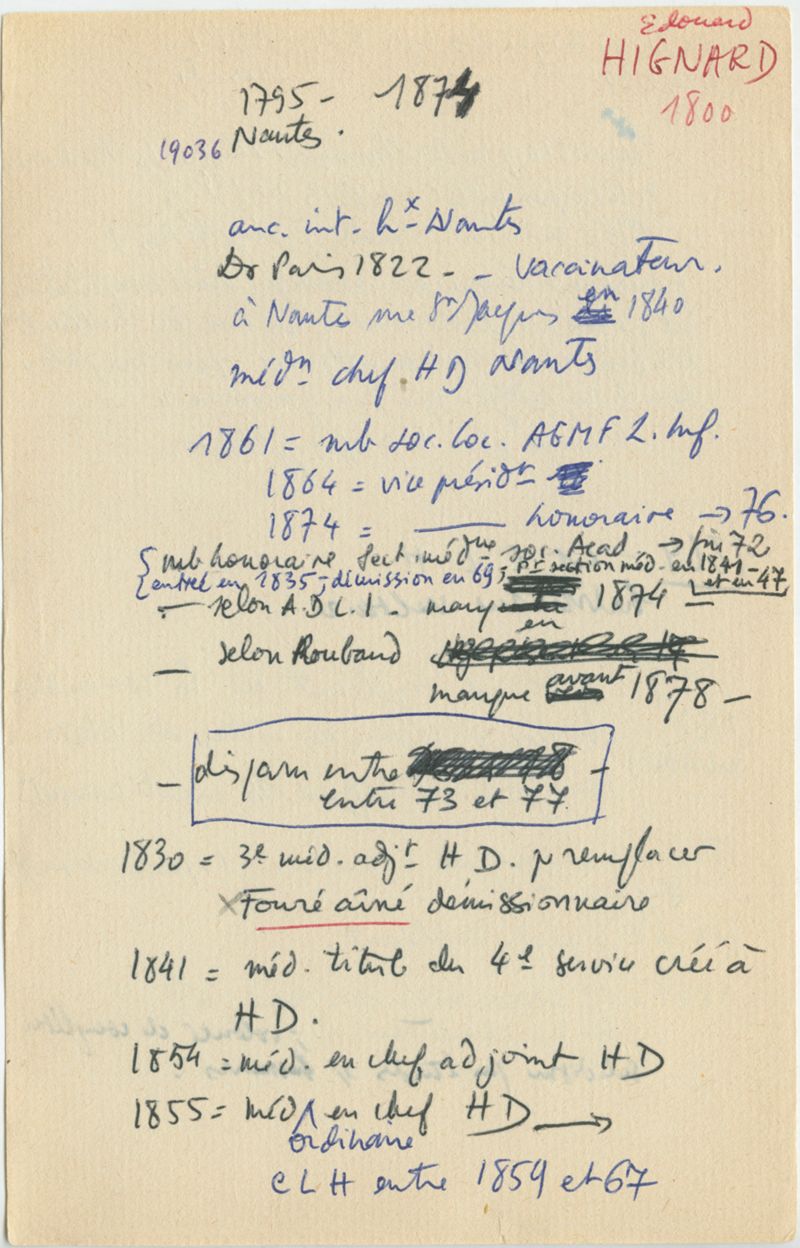 Edouard
HIGNARD
1800
1795 - 1874
19036 Nantes.
anc. int. hx Nantes
Dr Paris 1822 - - vaccinateur.
à Nantes rue St Jacques en 1840
médn chef HD Nantes
1861 = mb soc. loc. AGMF L. Inf.
1864 = vice présidt
1874 = —— honoraire → 76.
mb honoraire sect. médne soc. Acad → fin 72
entré en 1835 ; démission en 69 ; Pt section méd. en 1841 -
et en 47
- selon A.D.L.I - manque en 1874 -
- selon Roubaud
manque avant 1878 -
- disparu entre -
entre 73 et 77
1830 = 3e méd. adjt H D. pr remplacer
x Fouré aîné démissionnaire
1841 = méd. titul. du 4e service créé à
HD.
1854 = méd. en chef adjoint HD
1855 = méd ordinaire en chef HD →
CLH entre 1859 et 67